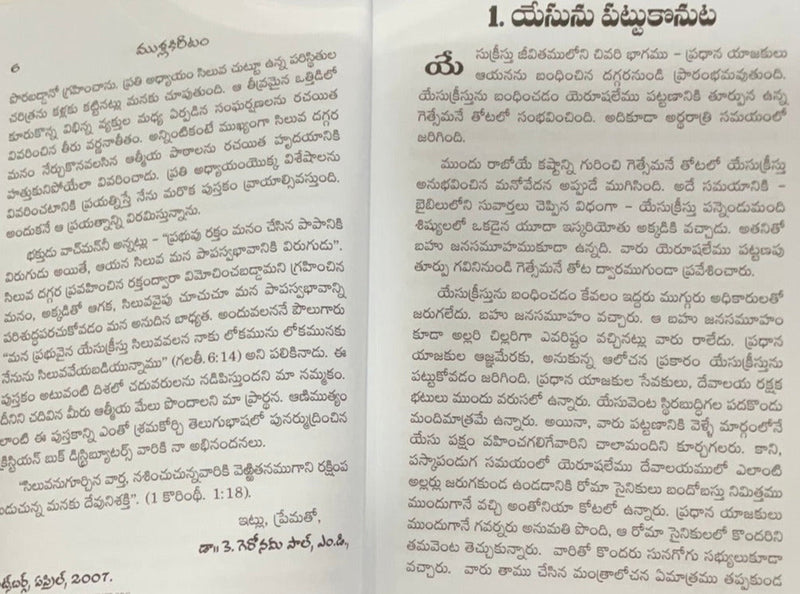 6
ముళ్లకిరీటం
పొరబడ్డానో గ్రహించాను. ప్రతి అధ్యాయం సిలువ చుట్టూ ఉన్న పరిస్థితుల
చరిత్రను కళ్లకు కట్టినట్లు మనకు చూపుతుంది. ఆ తీవ్రమైన ఒత్తిడిలో
కూరుకొన్న విభిన్న వ్యక్తుల మధ్య ఏర్పడిన సంఘర్షణలను రచయిత
వివరించిన తీరు వర్ణనాతీతం. అన్నింటికంటే ముఖ్యంగా సిలువ దగ్గర
మనం నేర్చుకొనవలసిన ఆత్మీయ పాఠాలను రచయిత హృదయానికి
హత్తుకునిపోయేలా వివరించాడు. ప్రతి అధ్యాయంయొక్క విశేషాలను
వివరించటానికి ప్రయత్నిస్తే నేను మరొక పుస్తకం వ్రాయాల్సివస్తుంది.
అందుకనే ఆ ప్రయత్నాన్ని విరమిస్తున్నాను.
భక్తుడు వాచ్‌మన్‌నీ అన్నట్లు – “ప్రభువు రక్తం మనం చేసిన పాపానికి
విరుగుడు అయితే, ఆయన సిలువ మన పాపస్వభావానికి విరుగుడు”.
సిలువ దగ్గర ప్రవహించిన రక్తంద్వారా విమోచించబడ్డామని గ్రహించిన
మనం, అక్కడితో ఆగక, సిలువవైపు చూచుచూ మన పాపస్వభావాన్ని
పరిశుద్ధపరచుకోవడం మన అనుదిన బాధ్యత. అందువలననే పౌలుగారు
“మన ప్రభువైన యేసుక్రీస్తు సిలువవలన నాకు లోకమును లోకమునకు
నేనును సిలువవేయబడియున్నాము” (గలతీ. 6:14) అని పలికినాడు. ఈ
పుస్తకం అటువంటి దిశలో చదువరులను నడిపిస్తుందని మా నమ్మకం.
దీనిని చదివిన మీరు ఆత్మీయ మేలు పొందాలని మా ప్రార్థన. ఆణిముత్యం
లాంటి ఈ పుస్తకాన్ని ఎంతో శ్రమకోర్చి తెలుగుభాషలో పునర్ముద్రించిన
క్రిస్టియన్ బుక్ డిస్ట్రిబ్యూటర్స్ వారికి నా అభినందనలు.
“సిలువనుగూర్చిన వార్త, నశించుచున్నవారికి వెఱ్ఱితనముగాని రక్షింప
బడుచున్న మనకు దేవునిశక్తి”. (1 కొరింథీ. 1:18).
ఇట్లు, ప్రేమతో,
డా॥ కె. గెరోనమ్ పాల్, ఎం.డి,
ఏప్రిల్, 2007.
1. యేసును పట్టుకొనుట
యేసుక్రీస్తు జీవితములోని చివరి భాగము – ప్రధాన యాజకులు
ఆయనను బంధించిన దగ్గరనుండి ప్రారంభమవుతుంది.
యేసుక్రీస్తును బంధించడం యెరూషలేము పట్టణానికి తూర్పున ఉన్న
గెత్సేమనే తోటలో సంభవించింది. అదికూడా అర్థరాత్రి సమయంలో
జరిగింది.
ముందు రాబోయే కష్టాన్ని గురించి గెత్సేమనే తోటలో యేసుక్రీస్తు
అనుభవించిన మనోవేదన అప్పుడే ముగిసింది. అదే సమయానికి –
బైబిలులోని సువార్తలు చెప్పిన విధంగా – యేసుక్రీస్తు పన్నెండుమంది
శిష్యులలో ఒకడైన యూదా ఇస్కరియోతు అక్కడికి వచ్చాడు. అతనితో
బహు జనసమూహముకూడా ఉన్నది. వారు యెరూషలేము పట్టణపు
తూర్పు గవినినుండి గెత్సేమనే తోట ద్వారముగుండా ప్రవేశించారు.
యేసుక్రీస్తును బంధించడం కేవలం ఇద్దరు ముగ్గురు అధికారులతో
జరుగలేదు. బహు జనసమూహం వచ్చారు. ఆ బహు జనసమూహం
కూడా అల్లరి చిల్లరిగా ఎవరిష్టం వచ్చినట్లు వారు రాలేదు. ప్రధాన
యాజకుల ఆజ్ఞమేరకు, అనుకున్న ఆలోచన ప్రకారం యేసుక్రీస్తును
పట్టుకోవడం జరిగింది. ప్రధాన యాజకుల సేవకులు, దేవాలయ రక్షక
భటులు ముందు వరుసలో ఉన్నారు. యేసువెంట స్థిరబుద్ధిగల పదకొండు
మందిమాత్రమే ఉన్నారు. అయినా, వారు పట్టణానికి వెళ్ళే మార్గంలోనే
యేసు పక్షం వహించగలిగేవారిని చాలామందిని కూర్చగలరు. కాని,
పస్కాపండుగ సమయంలో యెరూషలేము దేవాలయములో ఎలాంటి
అల్లర్లు జరుగకుండ ఉండడానికి రోమా సైనికులు బందోబస్తు నిమిత్తము
ముందుగానే వచ్చి అంతోనియా కోటలో ఉన్నారు. ప్రధాన యాజకులు
ముందుగానే గవర్నరు అనుమతి పొంది, ఆ రోమా సైనికులలో కొందరిని
తమవెంట తెచ్చుకున్నారు. వారితో కొందరు సునగోగు సభ్యులుకూడా
వచ్చారు. వారు తాము చేసిన మంత్రాలోచన ఏమాత్రము తప్పకుండ